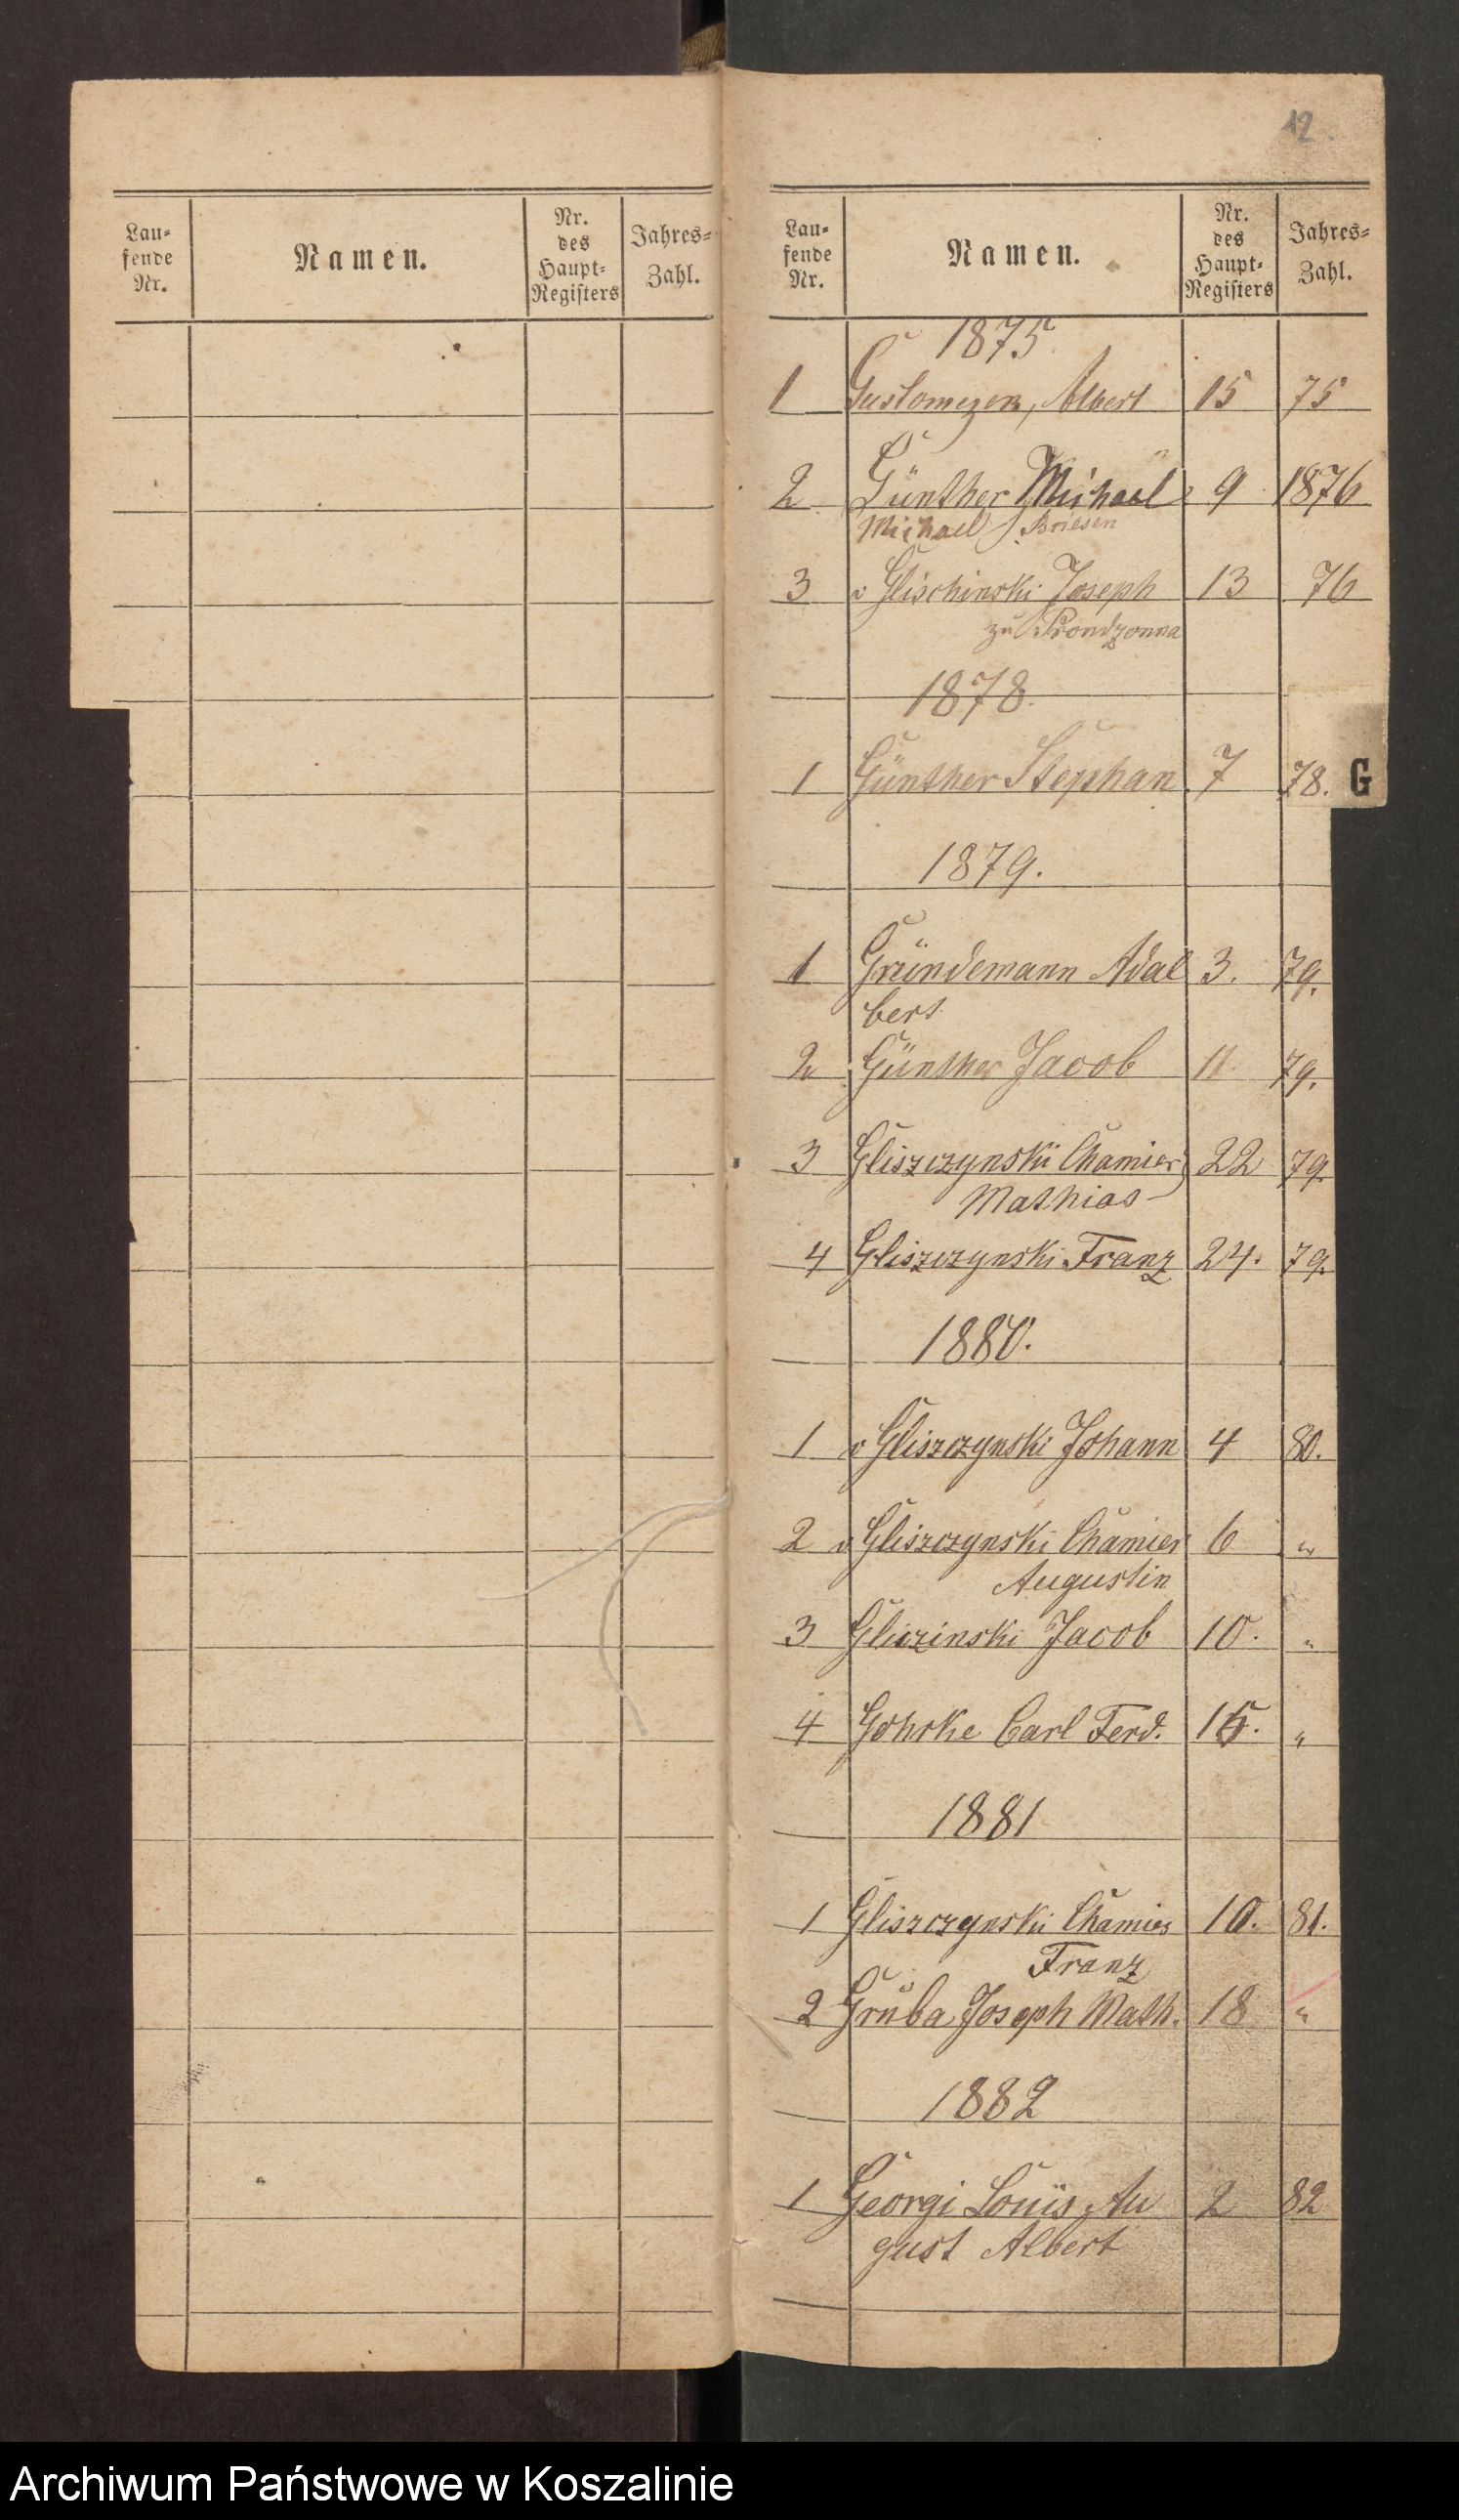 12
Lau-
fende
Nr.
Namen.
Nr.
des
Haupt-
Registers
Jahres-
Zahl.
Lau-
fende
Nr.
Namen.
Nr.
des
Haupt-
Registers
Jahres-
Zahl.
1875
1 Albert 15 75
2 Günther Michael 9 1876
Michael Briesen
3 v Glischinski Joseph 13 76
zu Prondzonna
1878.
1 Günther Stephan 7 78.
G
1879.
1 Gründemann Adal 3. 79.
bert
2 Günther Jacob 11. 79.
3 Gliszczynski Chamier 22 79.
Mathias
4 Gliszczynski Franz 24. 79.
1880.
1 v Gliszczynski Johann 4 80.
2 v Gliszczynski Chamier 6 "
Augustin
3 Gliczinski Jacob 10. "
4 Gohrke Carl Ferd. 15. "
1881
1 Gliszczynski Chamier 10. 81.
Franz
2 Gruba Joseph Math. 18 "
1882
1 Georgi Louis Au 2 82
gust Albert
Archiwum Państwowe w Koszalinie